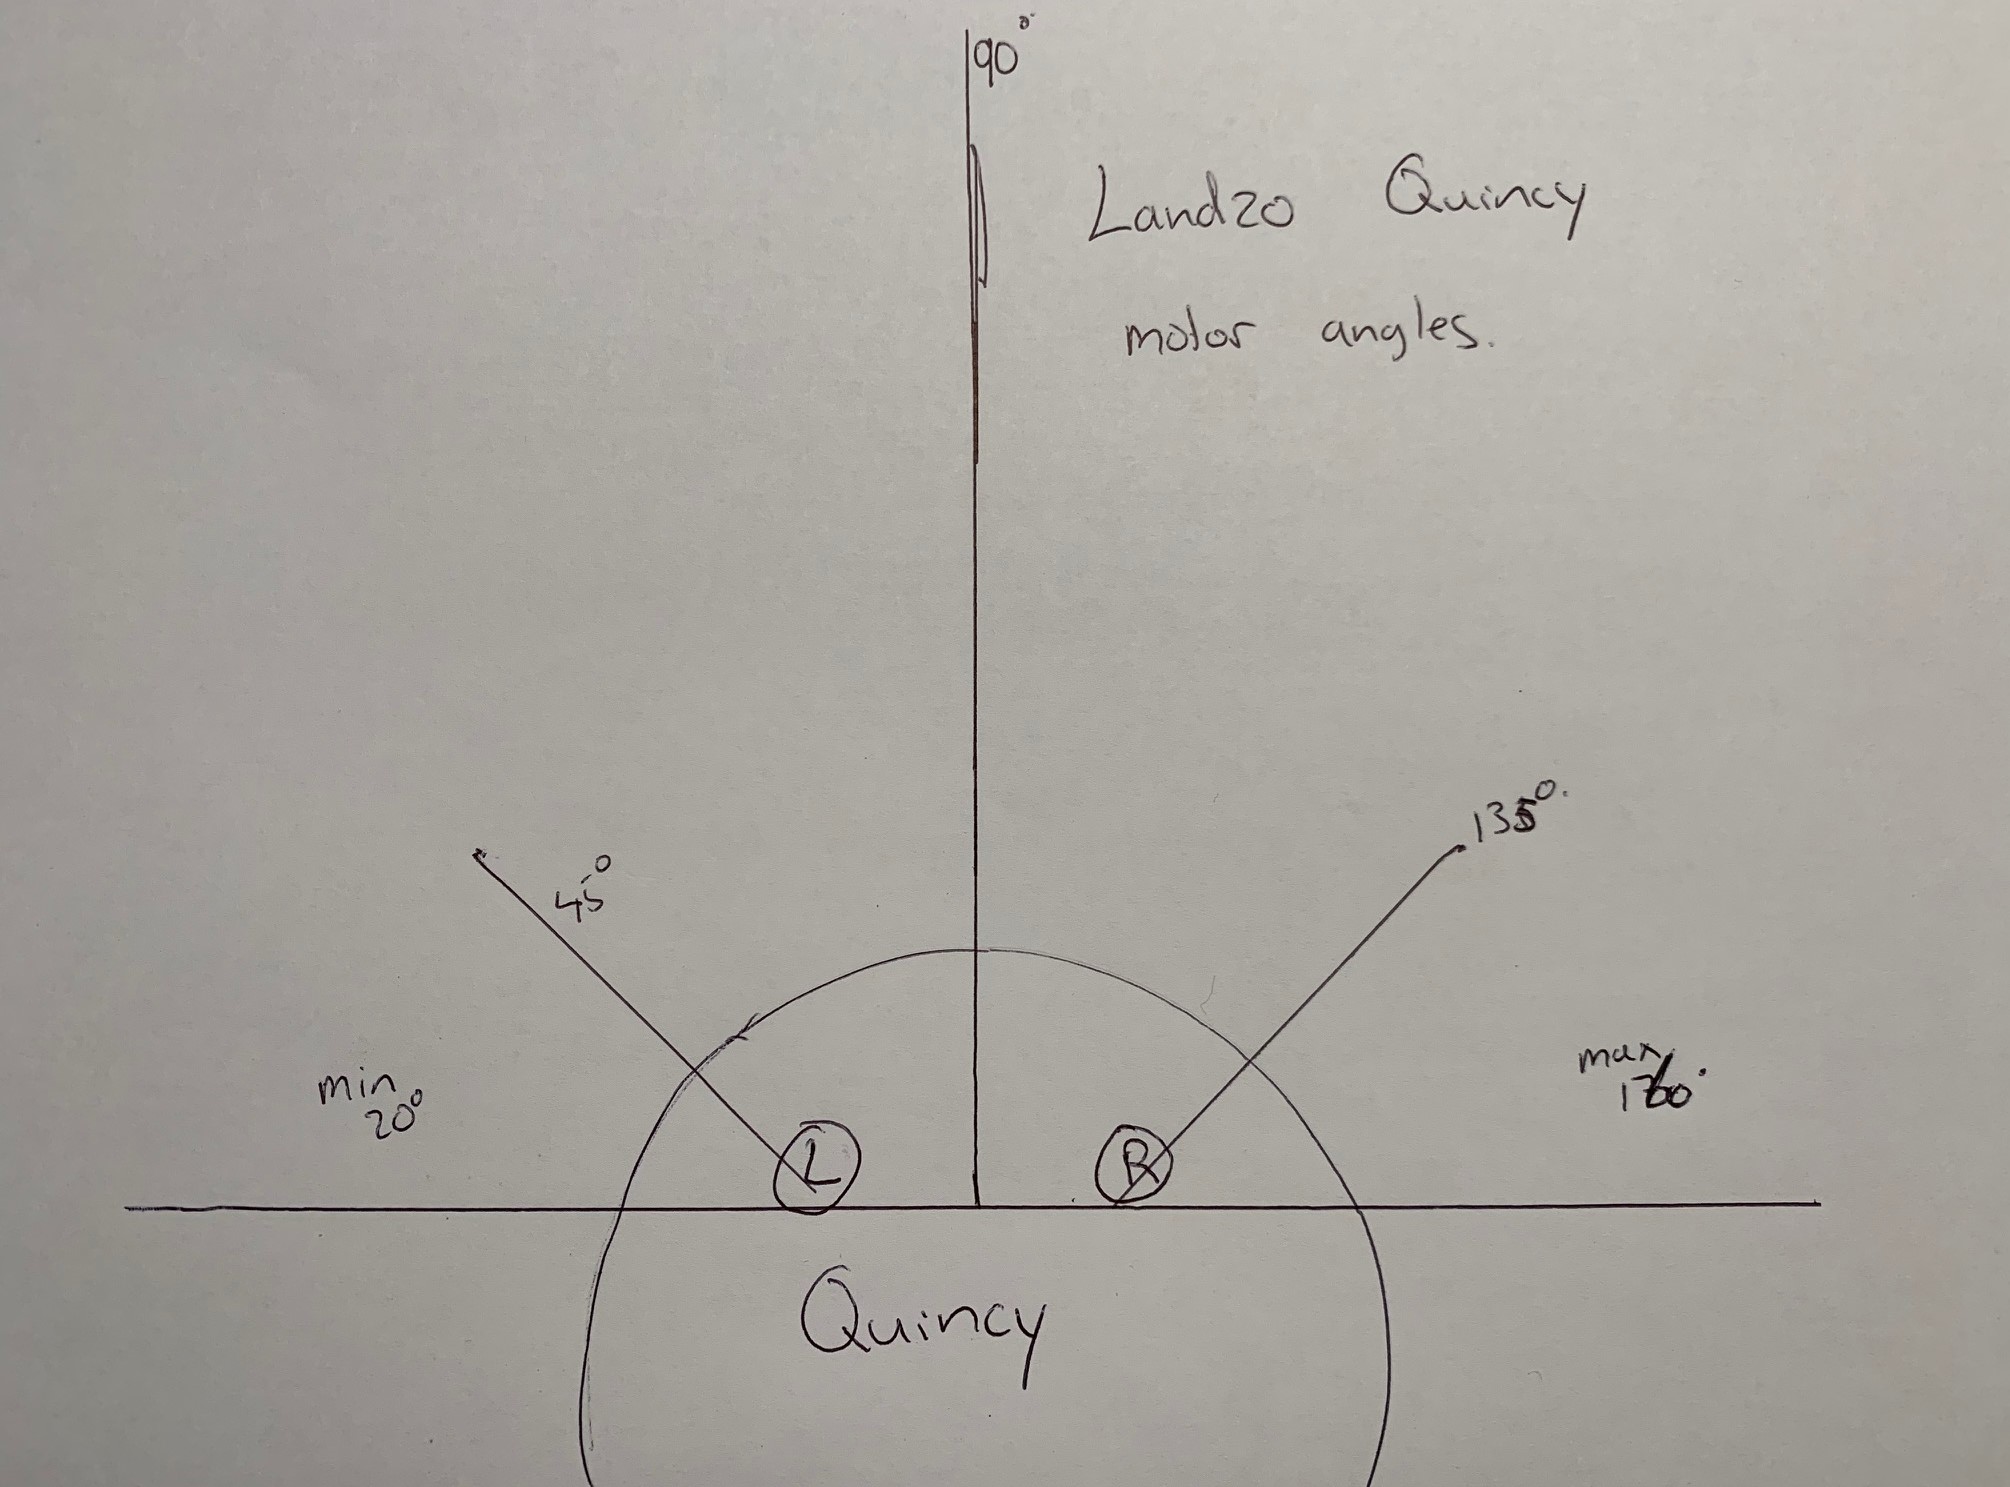 90°
Landzo Quincy
motor angles.
135°.
45°
min
20°
max
L
R
Quincy